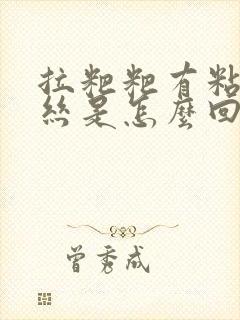 拉粑粑有粘
絲是怎麼回
曾秀成